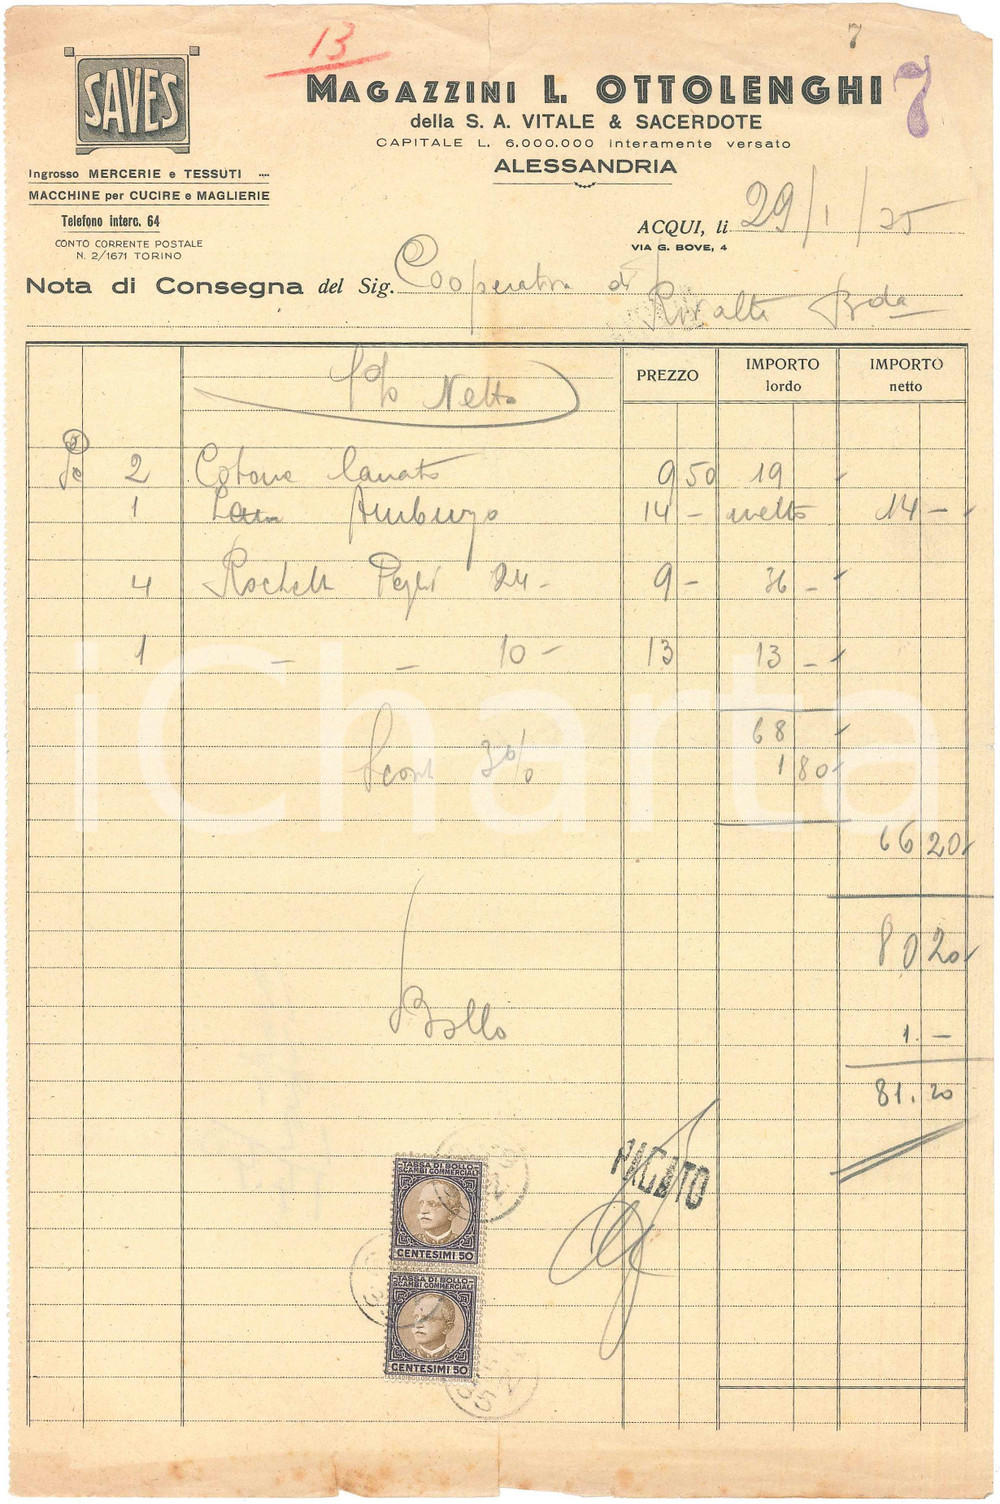 7
13
7
SAVES
MAGAZZINI L. OTTOLENGHI
della S. A. VITALE & SACERDOTE
CAPITALE L. 6.000.000 interamente versato
ALESSANDRIA
Ingrosso MERCERIE e TESSUTI
MACCHINE per CUCIRE e MAGLIERIE
Telefono interc. 64
CONTO CORRENTE POSTALE
N. 2/1671 TORINO
ACQUI, li 29/1/35
VIA G. BOVE, 4
Nota di Consegna del Sig. Cooperativa di
Rivalta Bda
PREZZO IMPORTO lordo IMPORTO netto
Netto
2 Cotone lanato 9 50 19
1 Lana Amburgo 14 - netto 14 -
4 Rochell Pegli 24 - 9 - 36 -
1 - - 10 - 13 13 -
68
Scont 3% 1 80
66 20
80 20
Bollo 1 -
81. 20
PAGATO
TASSA DI BOLLO
SCAMBI COMMERCIALI
CENTESIMI 50
TASSA DI BOLLO
SCAMBI COMMERCIALI
CENTESIMI 50
iCharta